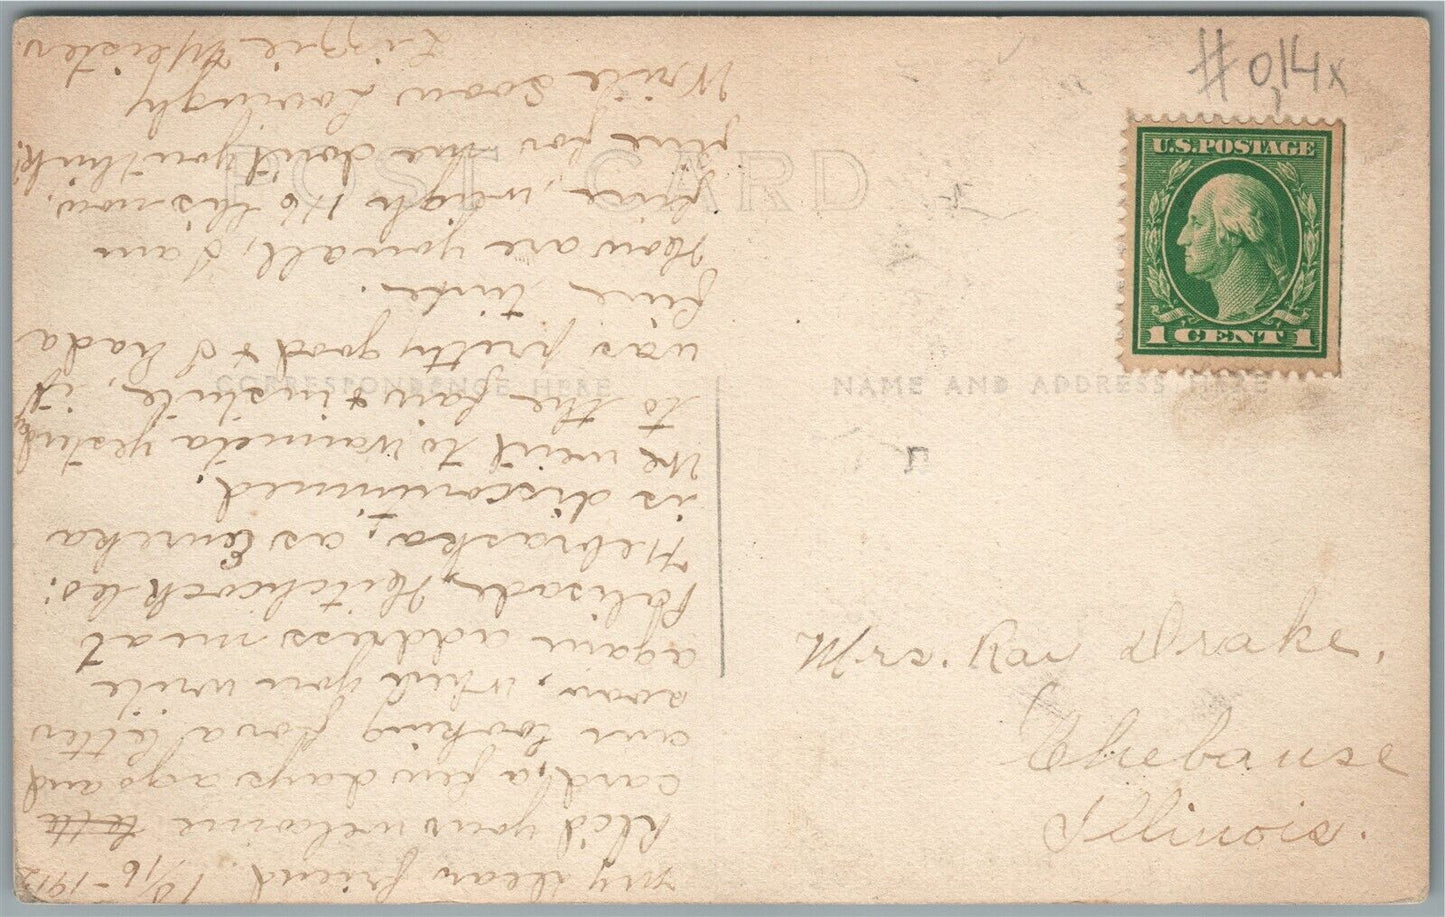 # 0,14x
U.S. POSTAGE
1 CENT 1
POST CARD
CORRESPONDENCE HERE
NAME AND ADDRESS HERE
Mrs. Ray Drake,
Chebanse
Illinois.
my dear friend. 10/16-1912
Rec'd your welcome
card, a few days ago and
am looking for a letter
soon, when you write
again address me at
Palisade, Hitchcock Co:
Nebraska, as Eureka
is discontinued.
We went to Wauneta
to the fair & institute, it
was pretty good & I had a
fine time.
How are you all, I am
fine, weigh 116 this now,
fine for me don't you think.
Write soon Lovingly
Lizzie